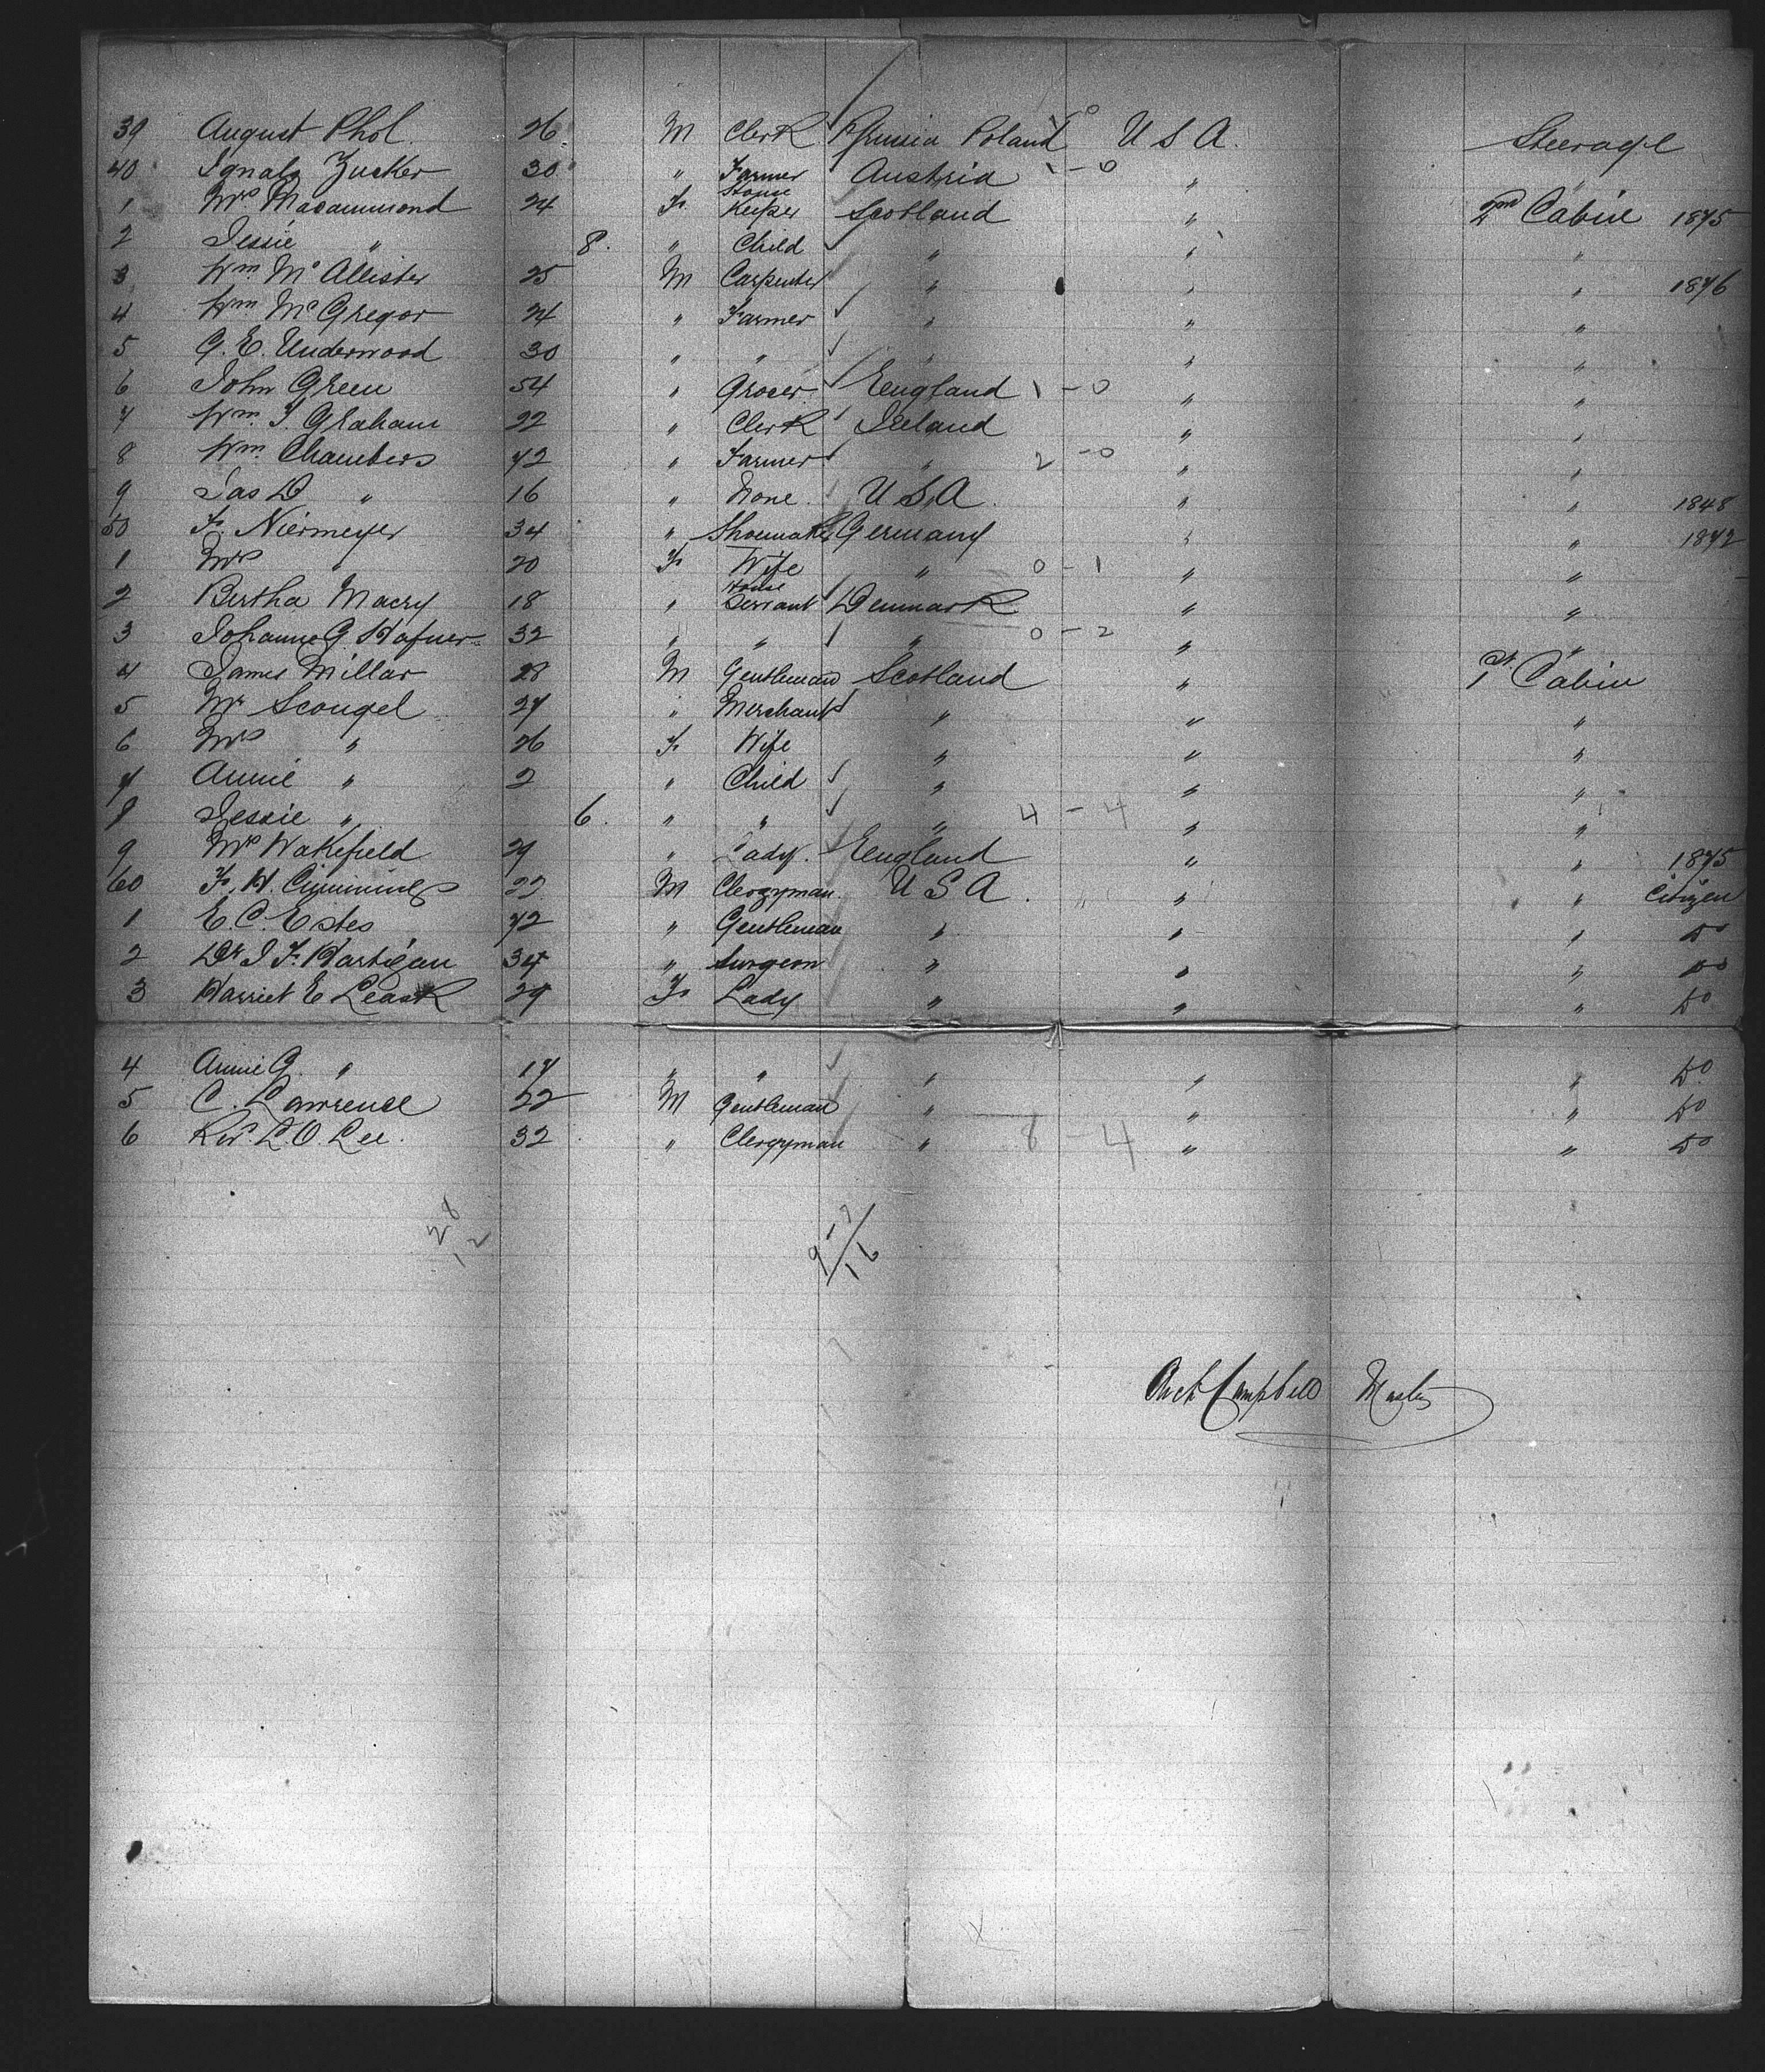 39 August Phol. 26 M Clerk Prussia Poland U S A. Steerage
40 Ignatz Zucker 30 " Farmer Austria 1-0 "
1 Mrs Macammond 24 F. House Keeper Scotland " 2nd Cabin 1875
2 Jessie " 8. " Child " " "
3 Wm McAllister 25 M Carpenter " " " 1876
4 Wm McGregor 24 " Farmer " " "
5 G. E. Underwood 30 " " " " "
6 John Green 54 " Grocer England 1-0 " "
7 Wm. J. Graham 22 " Clerk Ireland " "
8 Wm. Chambers 72 " Farmer " 2-0 " "
9 Jas D " 16 " None. U S A. " " 1848
50 F. Niermeyer 34 " Shoemaker Germany " " 1872
1 Mrs " 20 F. Wife " 0-1 " "
2 Bertha Macry 18 " House Servant Denmark " "
3 Johanne G. Hafner 32 " " " 0-2 " "
4 James Millar 28 M Gentleman Scotland " 1st Cabin
5 Mr Scougel 27 " Merchant " " "
6 Mrs " 26 F. Wife " " "
7 Annie " 2 " Child " " "
8 Jessie " 6. " " " 4-4 " "
9 Mrs Wakefield 29 " Lady. England " " 1875
60 F. H. 22 M Clergyman. U S A. " " Citizen
1 E. C. Estes 72 " Gentleman " " " Do
2 Dr J. F. Hartigan 34 " Surgeon " " " Do
3 Harriet E Leask 29 F. Lady " " " Do
4 Annie G. " 17 " " " " " Do
5 C. Lawrence 22 M Gentleman " " " Do
6 Rev. L. O. Lee. 32 " Clergyman " 8-4 " " Do
28
12
9-7
16
Arch Campbell Master